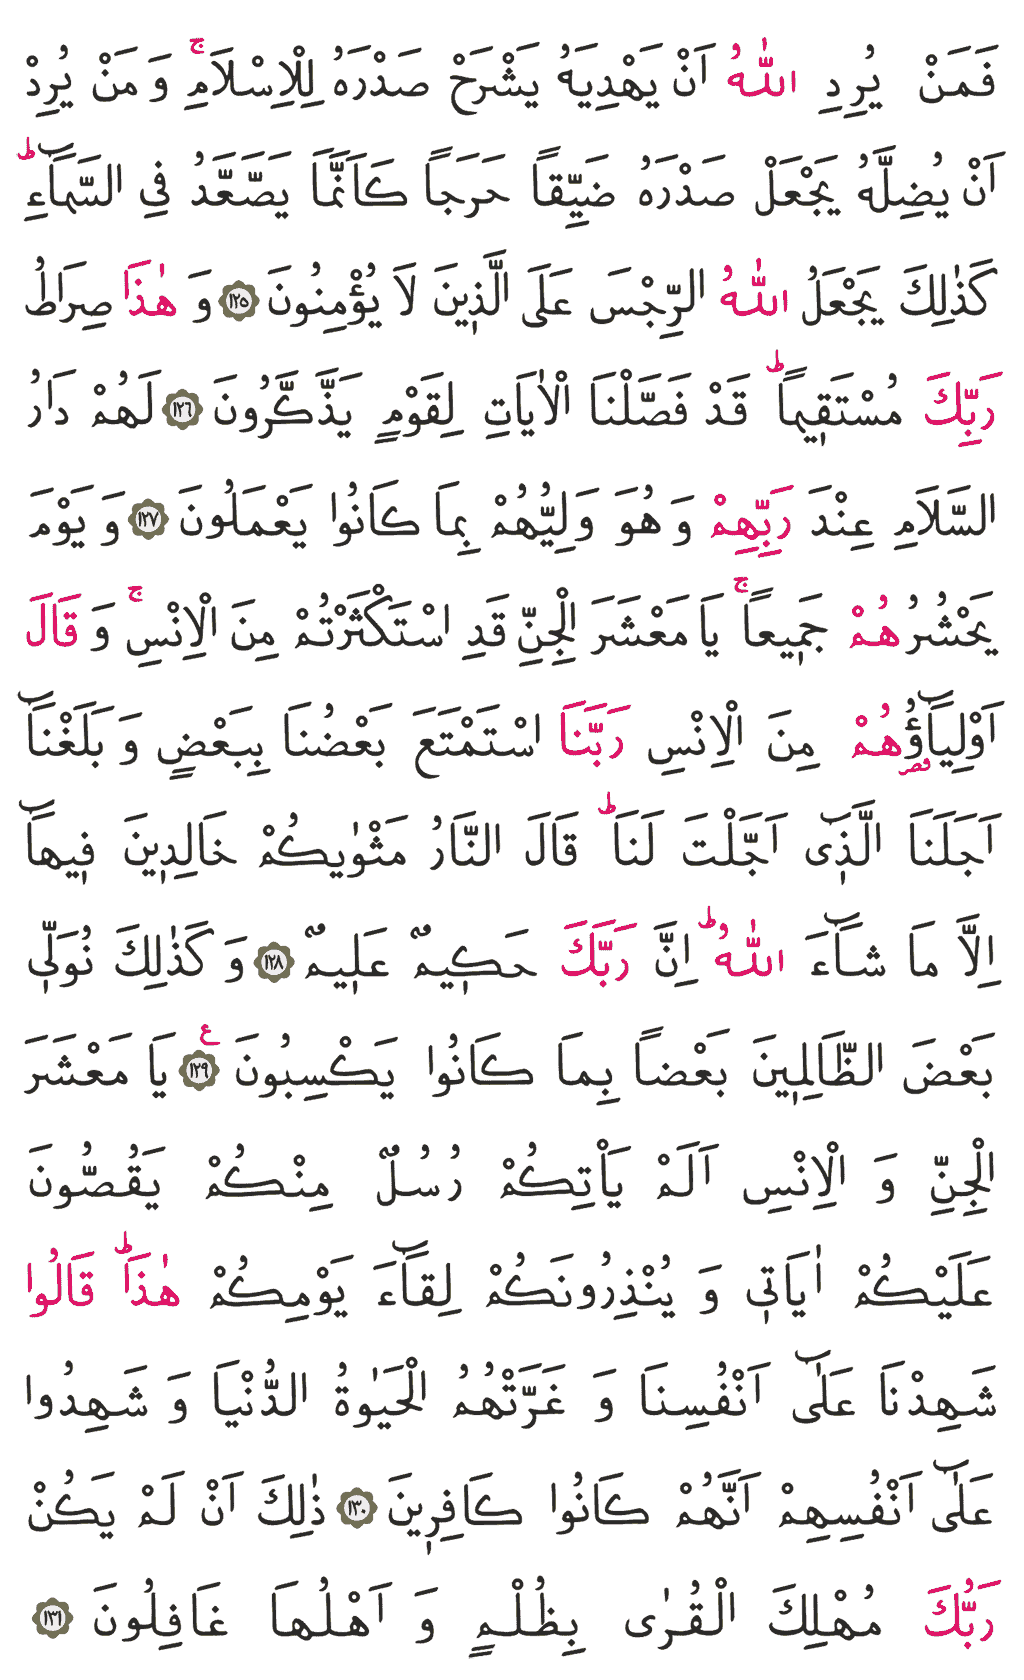 فَمَنْ يُرِدِ اللّٰهُ اَنْ يَهْدِيَهُ يَشْرَحْ صَدْرَهُ لِلْاِسْلَامِۚ وَ مَنْ يُرِدْ
اَنْ يُضِلَّهُ يَجْعَلْ صَدْرَهُ ضَيِّقاً حَرَجاً كَاَنَّمَا يَصَّعَّدُ فِي السَّمَٓاءِۜ
كَذٰلِكَ يَجْعَلُ اللّٰهُ الرِّجْسَ عَلَى الَّذ۪ينَ لَا يُؤْمِنُونَ ﴿١٢٥﴾ وَ هٰذَا صِرَاطُ
رَبِّكَ مُسْتَق۪يماًۜ قَدْ فَصَّلْنَا الْاٰيَاتِ لِقَوْمٍ يَذَّكَّرُونَ ﴿١٢٦﴾ لَهُمْ دَارُ
السَّلَامِ عِنْدَ رَبِّهِمْ وَ هُوَ وَلِيُّهُمْ بِمَا كَانُوا يَعْمَلُونَ ﴿١٢٧﴾ وَ يَوْمَ
يَحْشُرُهُمْ جَم۪يعاًۚ يَا مَعْشَرَ الْجِنِّ قَدِ اسْتَكْثَرْتُمْ مِنَ الْاِنْسِۚ وَ قَالَ
اَوْلِيَٓاؤُ۬هُمْ مِنَ الْاِنْسِ رَبَّنَا اسْتَمْتَعَ بَعْضُنَا بِبَعْضٍ وَ بَلَغْنَٓا
اَجَلَنَا الَّذ۪ٓي اَجَّلْتَ لَنَاۜ قَالَ النَّارُ مَثْوٰيكُمْ خَالِد۪ينَ ف۪يهَٓا
اِلَّا مَا شَٓاءَ اللّٰهُۜ اِنَّ رَبَّكَ حَك۪يمٌ عَل۪يمٌ ﴿١٢٨﴾ وَ كَذٰلِكَ نُوَلّ۪ي
بَعْضَ الظَّالِم۪ينَ بَعْضاً بِمَا كَانُوا يَكْسِبُونَ ﴿١٢٩﴾ ع يَا مَعْشَرَ
الْجِنِّ وَ الْاِنْسِ اَلَمْ يَأْتِكُمْ رُسُلٌ مِنْكُمْ يَقُصُّونَ
عَلَيْكُمْ اٰيَات۪ي وَ يُنْذِرُونَكُمْ لِقَٓاءَ يَوْمِكُمْ هٰذَاۜ قَالُوا
شَهِدْنَا عَلٰٓى اَنْفُسِنَا وَ غَرَّتْهُمُ الْحَيٰوةُ الدُّنْيَا وَ شَهِدُوا
عَلٰٓى اَنْفُسِهِمْ اَنَّهُمْ كَانُوا كَافِر۪ينَ ﴿١٣٠﴾ ذٰلِكَ اَنْ لَمْ يَكُنْ
رَبُّكَ مُهْلِكَ الْقُرٰى بِظُلْمٍ وَ اَهْلُهَا غَافِلُونَ ﴿١٣١﴾